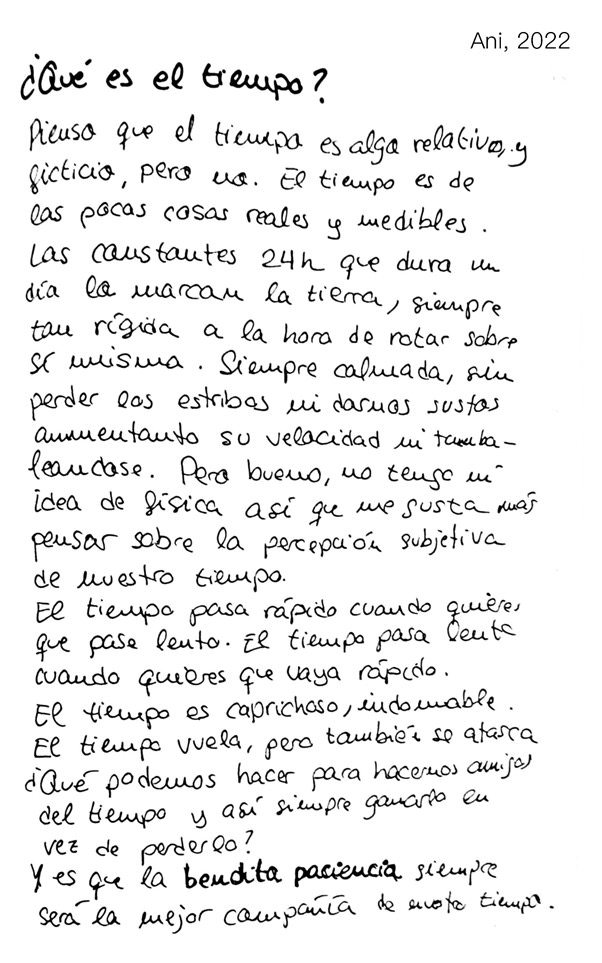 Ani, 2022
¿Qué es el tiempo?
Pienso que el tiempo es algo relativo, y
ficticio, pero no. El tiempo es de
las pocas cosas reales y medibles.
Las constantes 24h que dura un
día la marcan la tierra, siempre
tan rígida a la hora de rotar sobre
sí misma. Siempre calmada, sin
perder los estribos ni darnos sustos
aumentanto su velocidad ni tamba-
leandose. Pero bueno, no tengo ni
idea de física así que me gusta más
pensar sobre la percepción subjetiva
de nuestro tiempo.
El tiempo pasa rápido cuando quieres
que pase lento. El tiempo pasa lento
cuando quieres que vaya rápido.
El tiempo es caprichoso, indomable.
El tiempo vuela, pero también se atasca
¿Qué podemos hacer para hacernos amigos
del tiempo y así siempre ganarlo en
vez de perderlo?
Y es que la bendita paciencia siempre
será la mejor compañía de nuestro tiempo.